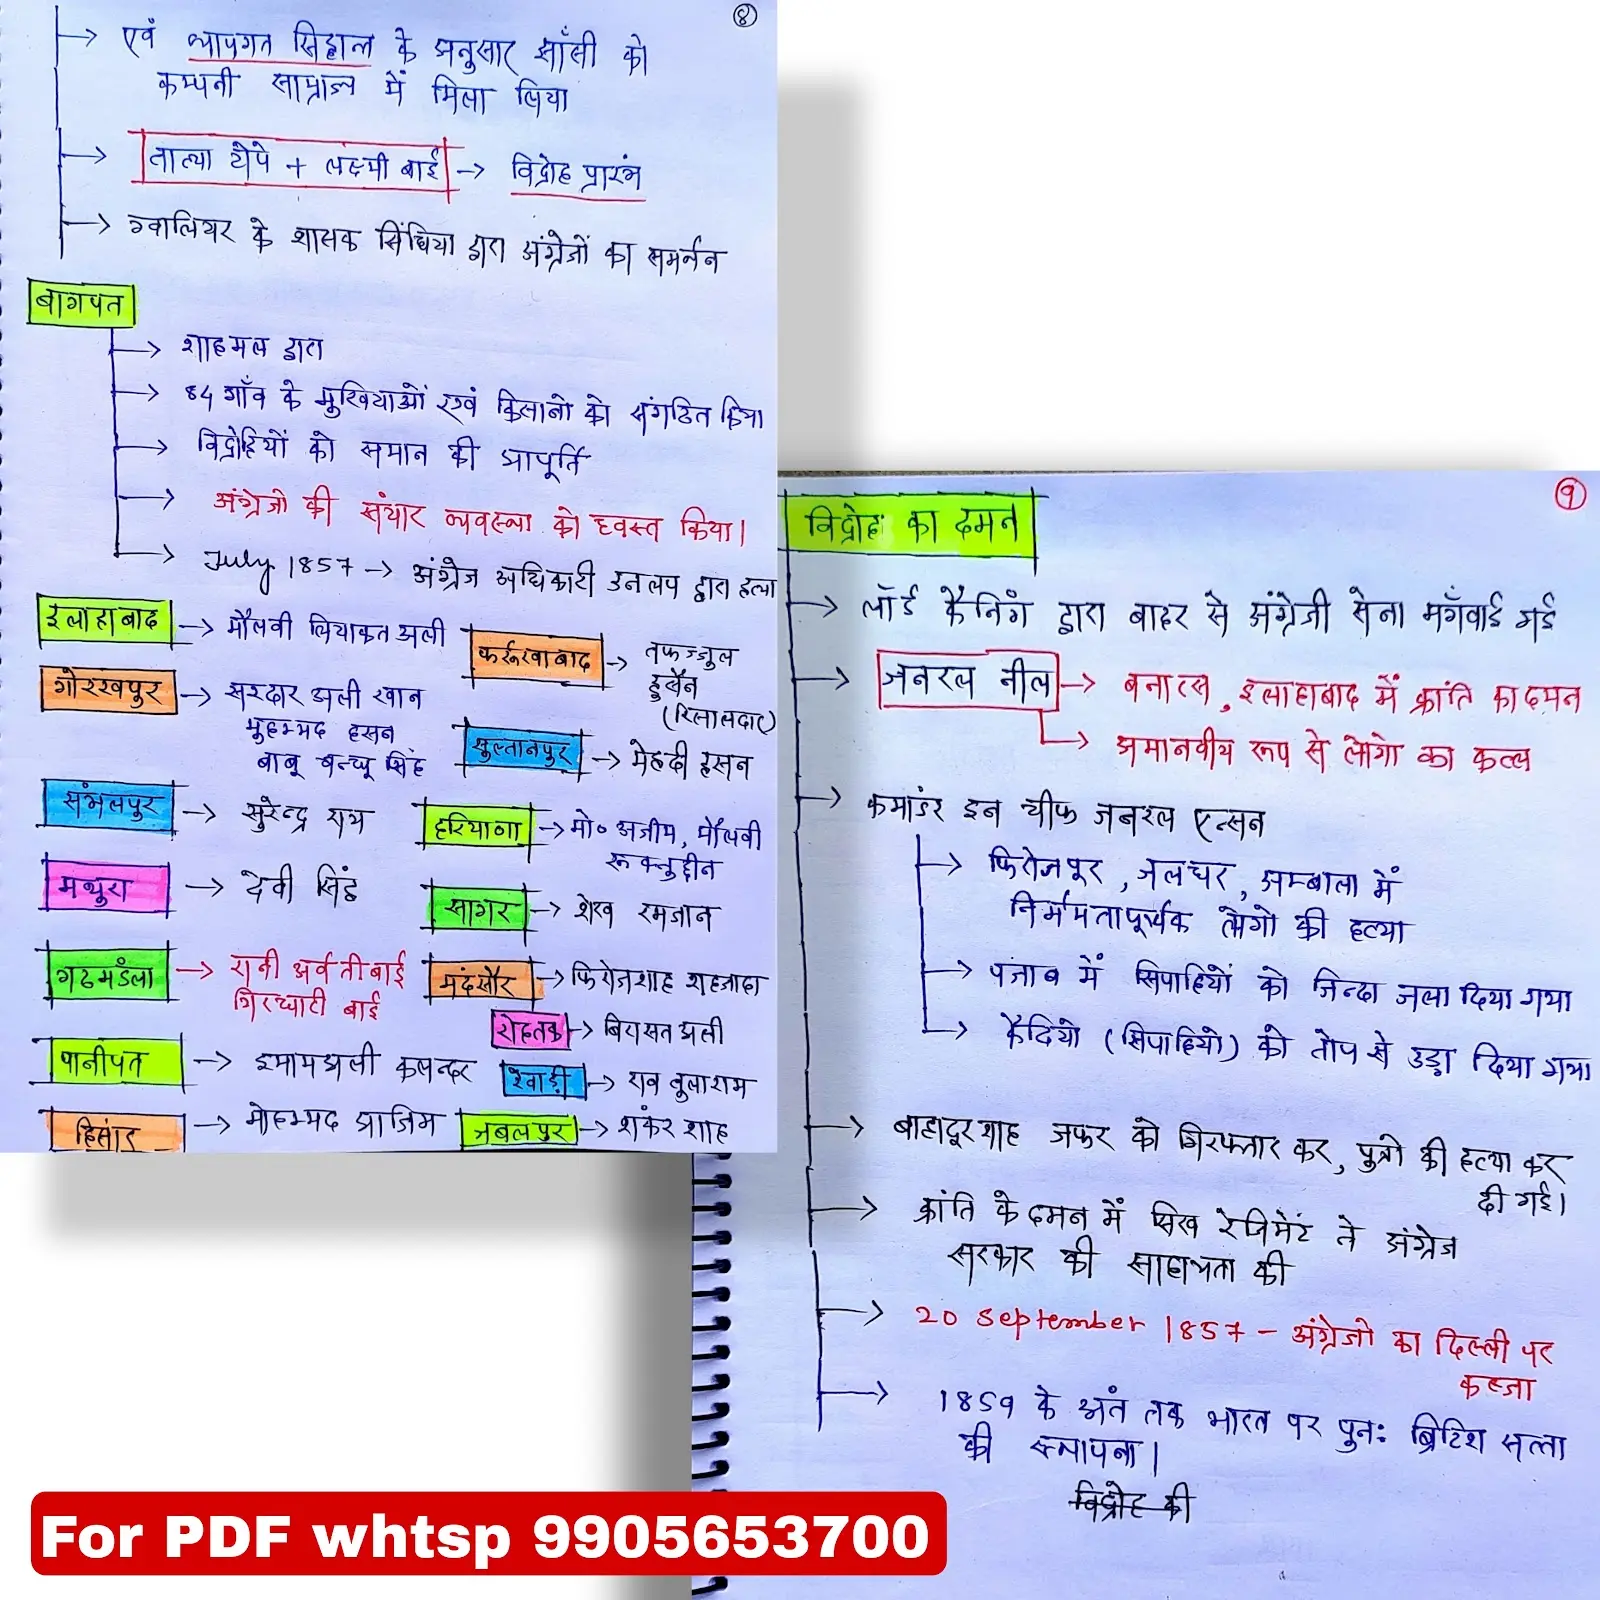 8
→ एवं व्यापगत सिद्धान्त के अनुसार झाँसी को
कम्पनी साम्राज्य में मिला लिया
→ तात्या टोपे + लक्ष्मी बाई → विद्रोह प्रारंभ
→ ग्वालियर के शासक सिंधिया द्वारा अंग्रेजों का समर्थन
बागपत
→ शाहमल द्वारा
→ 84 गाँव के मुखियाओं एवं किसानो को संगठित किया
→ विद्रोहियों को समान की आपूर्ति
→ अंग्रेजो की संचार व्यवस्था को ध्वस्त किया।
→ July 1857 → अंग्रेज अधिकारी डनलप द्वारा हत्या
इलाहाबाद → मौलवी लियाकत अली
फर्रूखाबाद → तफज्जुल
हुसैन
(रिसालदार)
गोरखपुर → सरदार अली खान
मुहम्मद हसन
बाबू बन्धू सिंह
सुल्तानपुर → मेहदी हसन
संभलपुर → सुरेन्द्र राय
हरियाणा → मो० अजीम, मौलवी
रूक्नुद्दीन
मथुरा → देवी सिंह
सागर → शेख रमजान
गढमंडला → रानी अवंतीबाई
गिरधारी बाई
मंदसौर → फिरोजशाह शहजादा
रोहतक → बिसारत अली
पानीपत → इमामअली कलन्दर
रेवाड़ी → राव तुलाराम
हिसार → मोहम्मद आजिम
जबलपुर → शंकर शाह
9
विद्रोह का दमन
→ लॉर्ड कैनिंग द्वारा बाहर से अंग्रेजी सेना मँगवाई गई
→ जनरल नील → बनारस, इलाहाबाद में क्रांति का दमन
→ अमानवीय रूप से लोगो का कत्ल
→ कमांडर इन चीफ जनरल एन्सन
→ फिरोजपूर, जलंधर, अम्बाला में
निर्ममतापूर्वक लोगो की हत्या
→ पंजाब में सिपाहियों को जिन्दा जला दिया गया
→ कैदियो (सिपाहियो) को तोप से उड़ा दिया गया
→ बाहादूरशाह जफर को गिरफ्तार कर, पुत्रो की हत्या कर
दी गई।
→ क्रांति के दमन में सिख रेजिमेंट ने अंग्रेज
सरकार की साहायता की
→ 20 September 1857 - अंग्रेजो का दिल्ली पर
कब्जा
→ 1859 के अंत तक भारत पर पुनः ब्रिटिश सत्ता
की स्थापना।
विद्रोह की
For PDF whtsp 9905653700